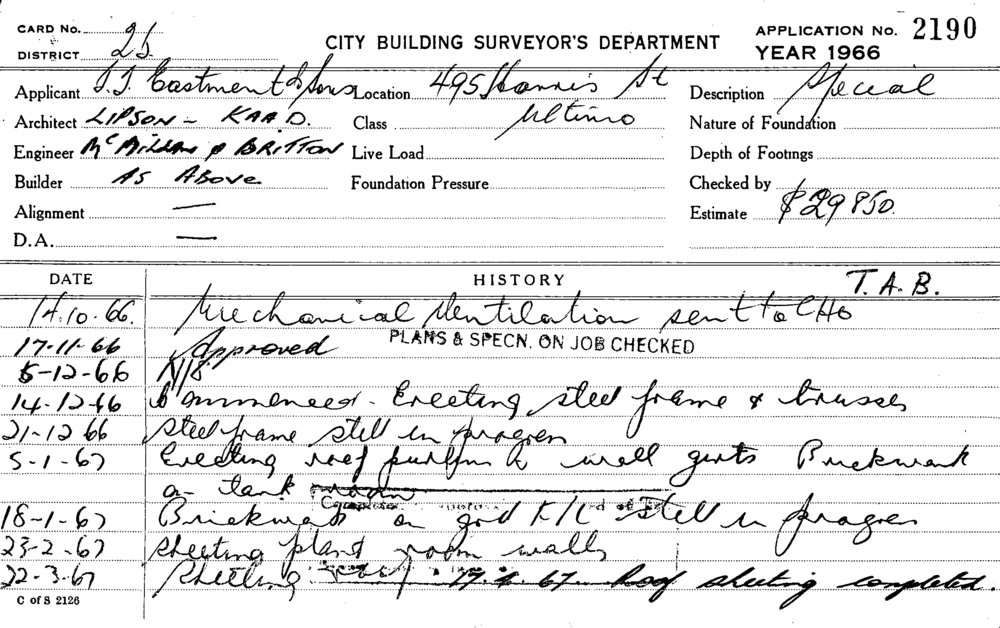 CARD No.
DISTRICT 25
CITY BUILDING SURVEYOR'S DEPARTMENT
APPLICATION No. 2190
YEAR 1966
Applicant J.J. Eastment & Sons Location 495 Harris St Description Special
Architect LIPSON - KAAD. Class Ultimo Nature of Foundation
Engineer McMillan & BRITTON Live Load Depth of Footings
Builder AS ABOVE Foundation Pressure Checked by
Alignment — Estimate $29850.
D.A. —
DATE HISTORY T.A.B.
14.10.66. Mechanical Ventilation sent to CHO
17-11-66 Approved PLANS & SPECN. ON JOB CHECKED
5-12-66 N/S.
14-12-66 Commenced - Erecting steel frame & trusses
21-12-66 Steel frame still in progress
5-1-67 Erecting roof purlins & wall girts Brickwork
on tank room
18-1-67 Brickwork on still in progress
23-2-67 Sheeting plant room walls
22-3-67 Sheeting roof 17.4.67. Roof sheeting completed.
C of S 2126